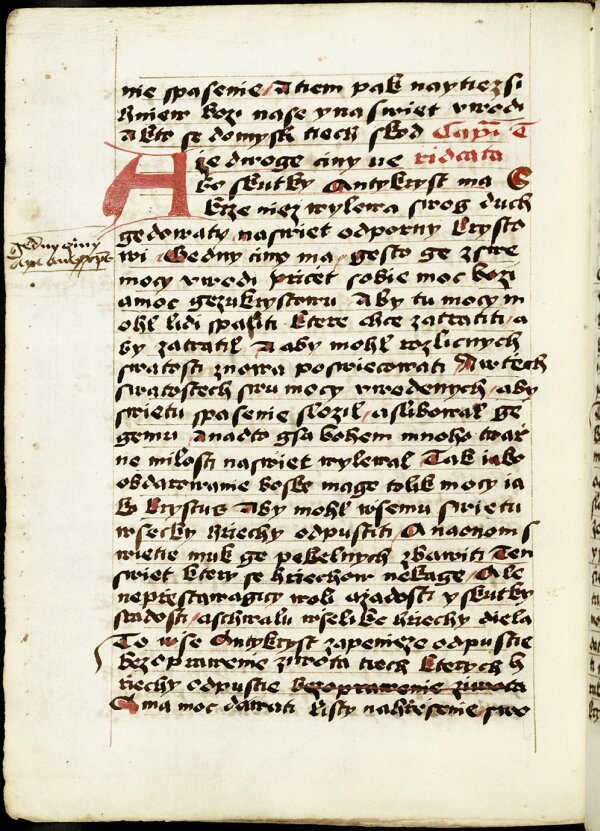 nie spasenie A tiem pak naytiezsi
hniew bozi nase y na swiet vwodi
A kto se domysli tiech skod Capi T
A ze droge ciny ve ridcata
ko skutky Antykryst ma S
krze niez wylewa swog duch
gedowaty na swiet odporny krysto
wi Gedny ciny ma gesto ge zswe
gedny ciny
mocy vwodi Pricet sobie moc bozi
a moc gezukrystowu Aby tu mocy m
ohl lidi spasiti ktere chce zatratiti a
by zatratil A aby mohl rozlicnych
swatosti znowa poswiecowati A w tech
swatostech swu mocy vwodenych aby
swietu spasenie slozil a slibowal ge
gemu A nadto gsa bohem mnoho twar
ne milosti na swiet wylewal Tak iako
obdarowanie boske mage tolik mocy ia
ko krystus Aby mohl wsemu swietu
wsecky hriechy odpustiti A na onom s
wietie muk ge pekelnych zbawiti Ten
swiet ktery se hriechow nekage Ale
neprestawagicy woli a zadosti y skutky
stadosti a schwalu wselike hriechy diela
To wse Antykryst za penieze odpustie
bez oprawenie ziwota tiech kterych h
riechy odpustie bez oprawenie ziwota
S ma moc dawati listy na hresenie swo